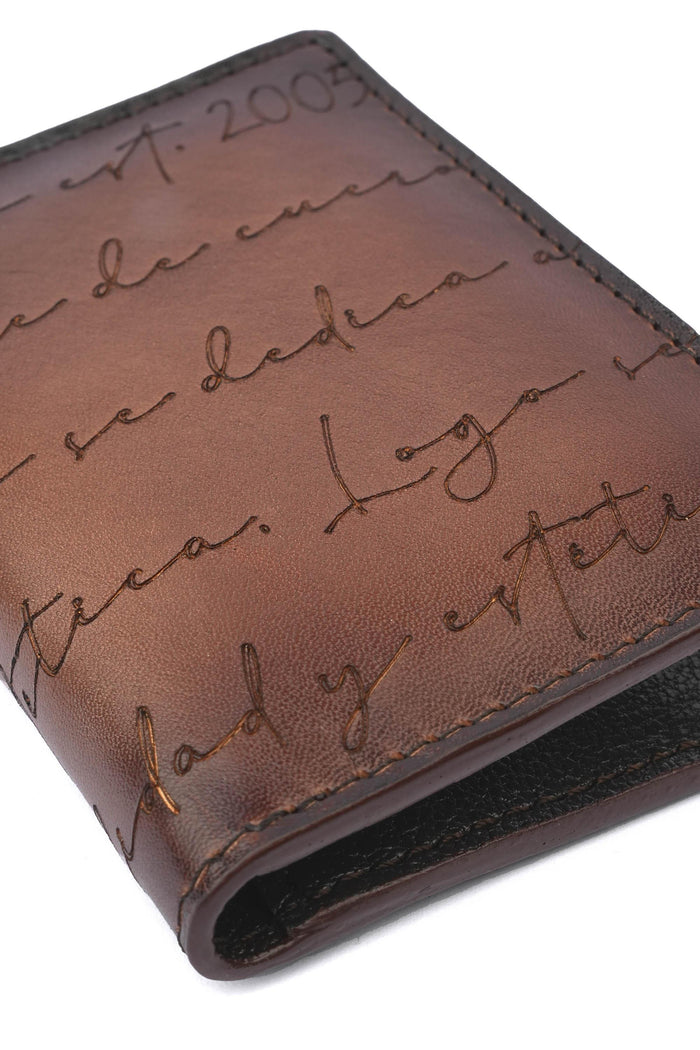 est. 2005
de cuero
se dedica a
tica. Logo se
dad y esteti